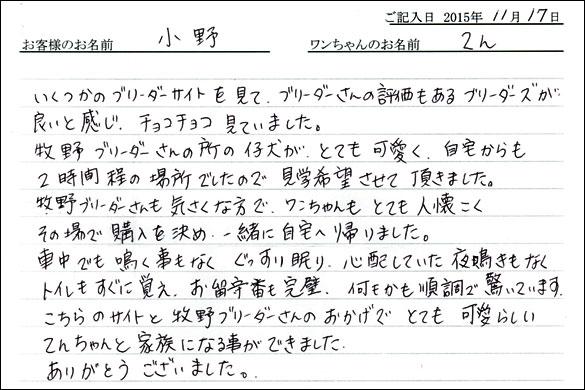 ご記入日 2015年 11月 17日
お客様のお名前 小野 ワンちゃんのお名前 てん
いくつかのブリーダーサイトを見て、ブリーダーさんの評価もあるブリーダーズが
良いと感じ、チョコチョコ見ていました。
牧野ブリーダーさんの所の仔犬が、とても可愛く、自宅からも
2時間程の場所でしたので見学希望させて頂きました。
牧野ブリーダーさんも気さくな方で、ワンちゃんもとても人懐こく
その場で購入を決め、一緒に自宅へ帰りました。
車中でも鳴く事もなくぐっすり眠り、心配していた夜鳴きもなく
トイレもすぐに覚え、お留守番も完璧、何もかも順調で驚いています。
こちらのサイトと牧野ブリーダーさんのおかげでとても可愛らしい
てんちゃんと家族になる事ができました。
ありがとうございました。